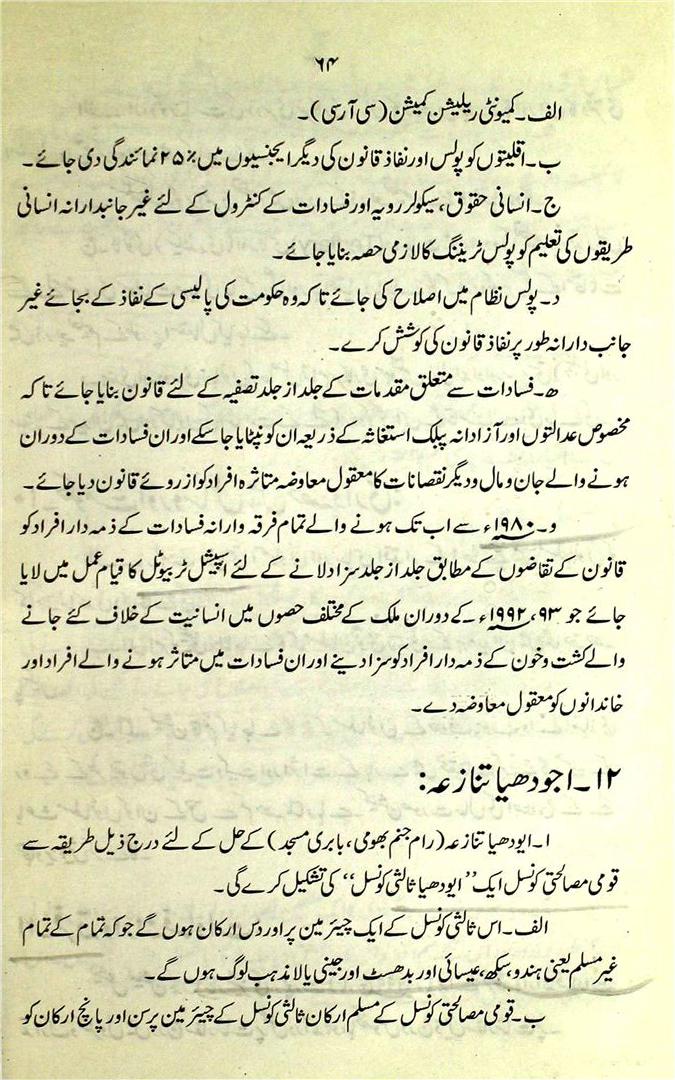 ۶۴
الف۔ کمیونٹی ریلیشن کمیشن (سی آر سی)۔
ب۔ اقلیتوں کو پولس اور نفاذ قانون کی دیگر ایجنسیوں میں ۲۵٪ نمائندگی دی جائے۔
ج۔ انسانی حقوق، سیکولر رویہ اور فسادات کے کنٹرول کے لئے غیر جانبدارانہ انسانی
طریقوں کی تعلیم کو پولس ٹریننگ کا لازمی حصہ بنایا جائے۔
د۔ پولس نظام میں اصلاح کی جائے تاکہ وہ حکومت کی پالیسی کے نفاذ کے بجائے غیر
جانب دارانہ طور پر نفاذ قانون کی کوشش کرے۔
ھ۔ فسادات سے متعلق مقدمات کے جلد از جلد تصفیہ کے لئے قانون بنایا جائے تاکہ
مخصوص عدالتوں اور آزادانہ پبلک استغاثہ کے ذریعہ ان کو نپٹایا جاسکے اور ان فسادات کے دوران
ہونے والے جان و مال و دیگر نقصانات کا معقول معاوضہ متاثرہ افراد کو از روئے قانون دیا جائے۔
و۔ ۱۹۸۰ء سے اب تک ہونے والے تمام فرقہ وارانہ فسادات کے ذمہ دار افراد کو
قانون کے تقاضوں کے مطابق جلد از جلد سزا دلانے کے لئے اسپیشل ٹربیوٹل کا قیام عمل میں لایا
جائے جو ۹۳،۱۹۹۲ء کے دوران ملک کے مختلف حصوں میں انسانیت کے خلاف کئے جانے
والے کشت و خون کے ذمہ دار افراد کو سزا دینے اور ان فسادات میں متاثر ہونے والے افراد اور
خاندانوں کو معقول معاوضہ دے۔
۱۲۔ اجودھیا تنازعہ:
۱۔ ایودھیا تنازعہ (رام جنم بھومی، بابری مسجد) کے حل کے لئے درج ذیل طریقہ سے
قومی مصالحتی کونسل ایک ”ایودھیا ثالثی کونسل“ کی تشکیل کرے گی۔
الف۔ اس ثالثی کونسل کے ایک چیئرمین پر اور دس ارکان ہوں گے جو کہ تمام کے تمام
غیر مسلم یعنی ہندو، سکھ، عیسائی اور بدھسٹ اور جینی یا لا مذہب لوگ ہوں گے۔
ب۔ قومی مصالحتی کونسل کے مسلم ارکان ثالثی کونسل کے چیئرمین پرسن اور پانچ ارکان کو